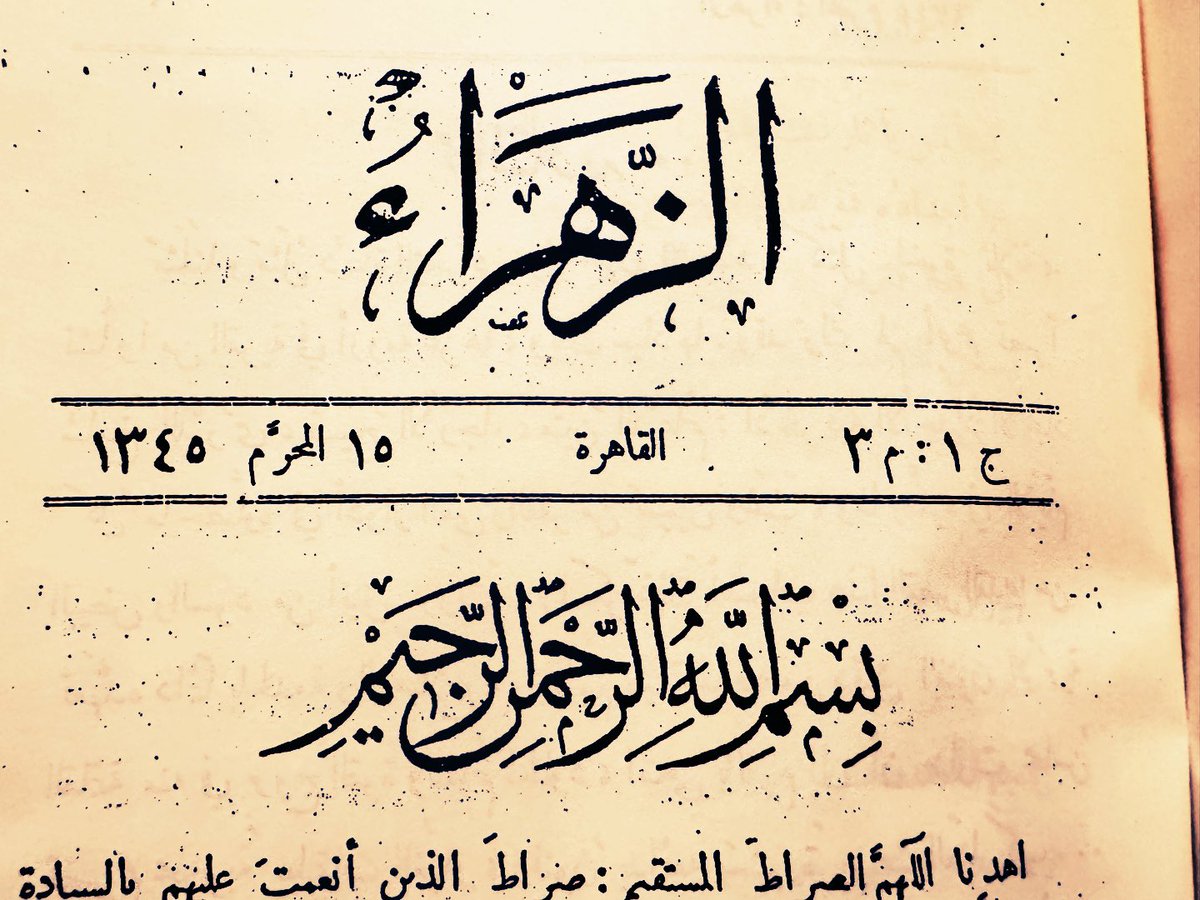 الزَّهْرَاءُ
ج ١ : م ٣ القاهرة ١٥ المحرَّم ١٣٤٥
بِسْمِ اللهِ الرَّحْمنِ الرَّحِيْمِ
اهدِنا اللّهمَّ الصراطَ المستقيم : صراطَ الذين أنعمتَ عليهم بالسيادة